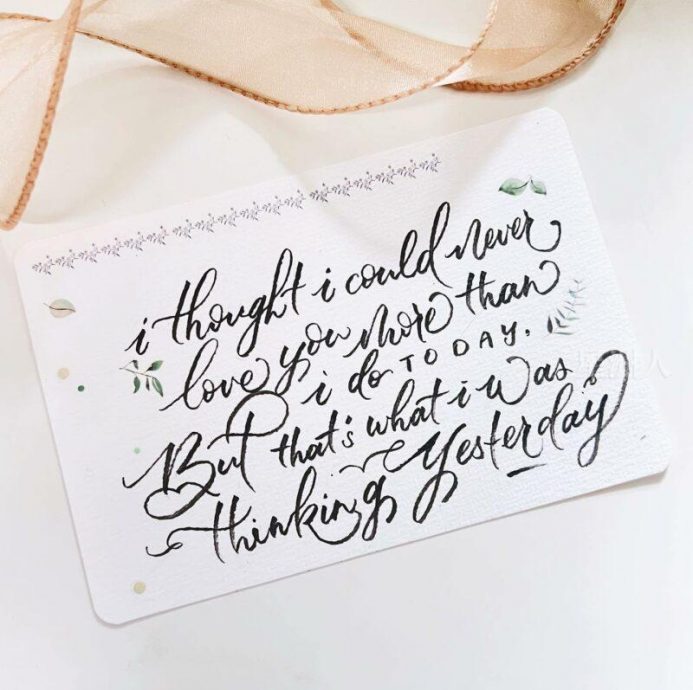 i thought i could never
love you more than
i do TODAY.
But that's what i was
thinking yesterday